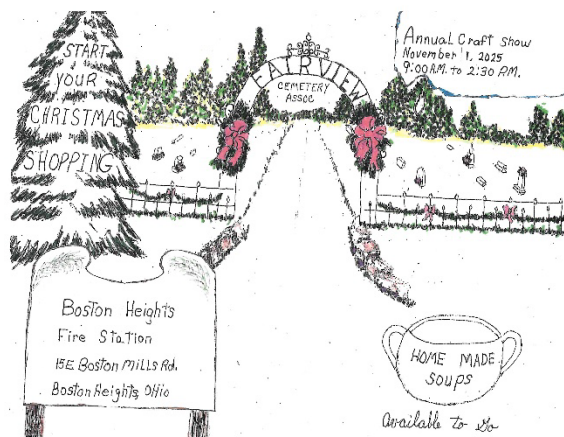 START
YOUR
CHRISTMAS
SHOPPING
FAIRVIEW
CEMETERY
ASSOC
Annual Craft Show
November 1, 2025
9:00 A.M. to 2:30 P.M.
Boston Heights
Fire Station
15E Boston Mills Rd.
Boston Heights, Ohio
HOME MADE
SOUPS
Available to Go